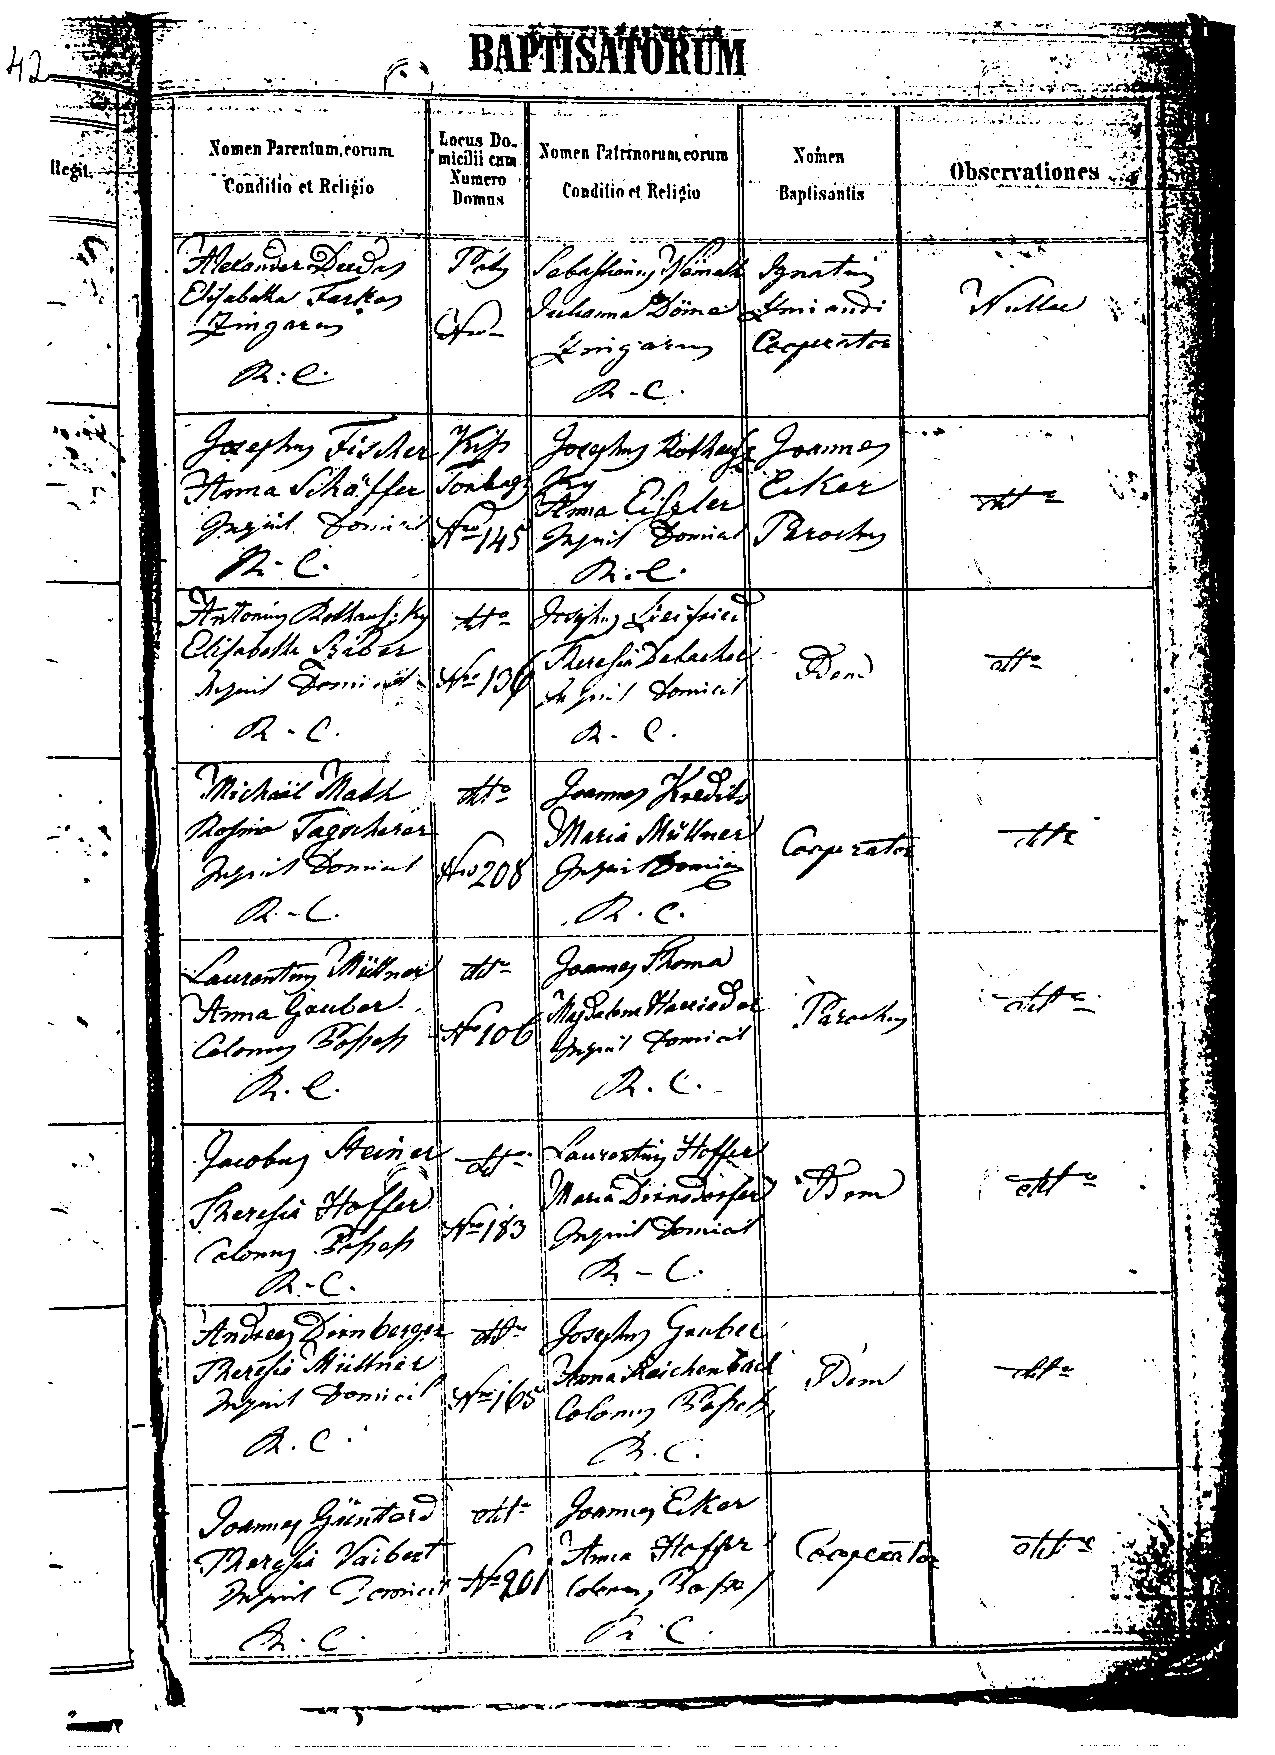 42
BAPTISATORUM
Regit.
Nomen Parentum, eorum
Conditio et Religio
Locus Do-
micilii cum
Numero
Domus
Nomen Patrinorum, eorum
Conditio et Religio
Nomen
Baptisantis
Observationes
Alexander
Elisabetha Farkas
Zingarus
R. C.
Sebastianus Németh
Julianna Döme
Zingarus
R - C.
Ignatius
Cooperator
Nullae
Josephus Fischer
Anna Schäffer
Inquil Domicil
R - C.
Kiss
Nro 145
Josephus
Anna Eisler
Inquil Domicil
R. C.
Joannes
Eker
Parochus
dtto
Antonius
Elisabetha
Inquil Domicil
R - C.
dtto
Nro 136
Josephus
Theresia
Inquil Domicil
R - C.
Idem
dtto
Michaël Math
Rosina
Inquil Domicil
R - C.
dtto
Nro 208
Joannes
Maria Müllner
Inquil Domici
R. C.
Cooperator
dtto
Laurentius Müllner
Anna Gruber
Colonus Possess
R. C.
dtto
Nro 106
Joannes Thoma
Magdalena
Inquil Domicil
R. C.
Parochus
dtto
Jacobus Steiner
Theresia Hoffer
Colonus Possess
R - C.
dtto
Nro 183
Laurentius Hoffer
Maria Dirnsdorfer
Inquil Domicil
R - C.
Idem
dtto
Andreas Dirnberger
Theresia Müllner
Inquil Domicil
R. C.
dtto
Nro 165
Josephus Gruber
Anna Reichenbach
Colonus Possess
R. C.
Idem
dtto
Joannes
Theresia Vaibert
Inquil Domicil
R. C.
dtto
Nro 201
Joannes Eker
Anna Hoffer
Colonus Possess
R. C.
Cooperator
dtto